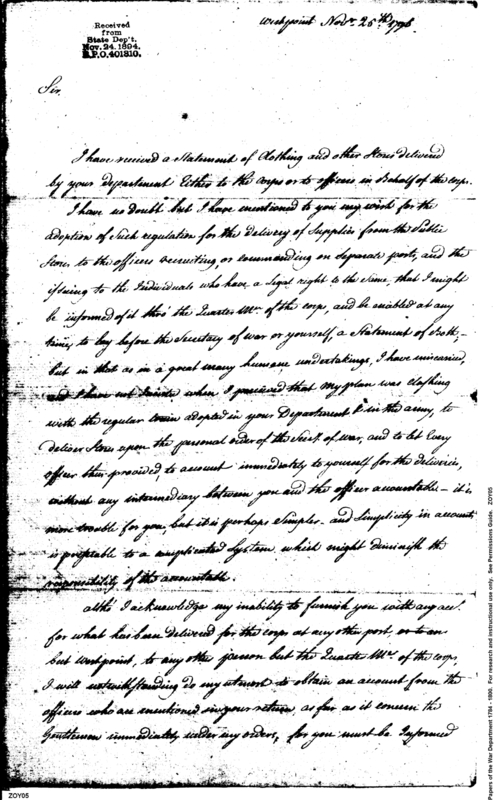 Received
from
State Dep't.
Nov. 24. 1894.
R.P.O. 401310.
Westpoint Novr. 25th 1796.
Sir.
I have received a Statement of Clothing and other Stores delivered
by your department Either to the Corps or to officers in Behalf of the corps.
I have no doubt but I have mentioned to you my wish for the
adoption of Such regulation for the delivery of Supplies from the Public
Stores to the officers recruiting, or commanding on Separate posts, and the
issuing to the Individuals who have a legal right to the Same, that I might
be informed of it thro' the Quarter Mr. of the corps, and be enabled at any
time, to lay before the Secretary of war or yourself, a Statement of Both,-
but in that as in a great many humane undertakings, I have miscarried,
and I have not insisted when I perceived that my plan was clashing
with the regular train adopted in your Department & in the army, to
deliver Stores upon the personal order of the Secy. of war, and to let Every
officer thus provided, to account immediately to yourself for the deliveries,
without any intermediary between you and the officer accountable - it is
more trouble for you, but it is perhaps Simpler - and Simplicity in accounts
is preferable to a complicated System which might diminish the
responsibility of the accountable.
altho' I acknowledge my inability to furnish you with any acct.
for what has been delivered for the corps at any other post,
but westpoint, to any other person but the Quarter Mr. of the corps,
I will notwithstanding do my utmost to obtain an account from the
officers who are mentioned in your return, as far as it concern the
Gentlemen immediately under my orders, for you must be Informed
ZOY05
Papers of the War Department 1784 - 1800. For research and instructional use only. See Permissions Guide. ZOY05